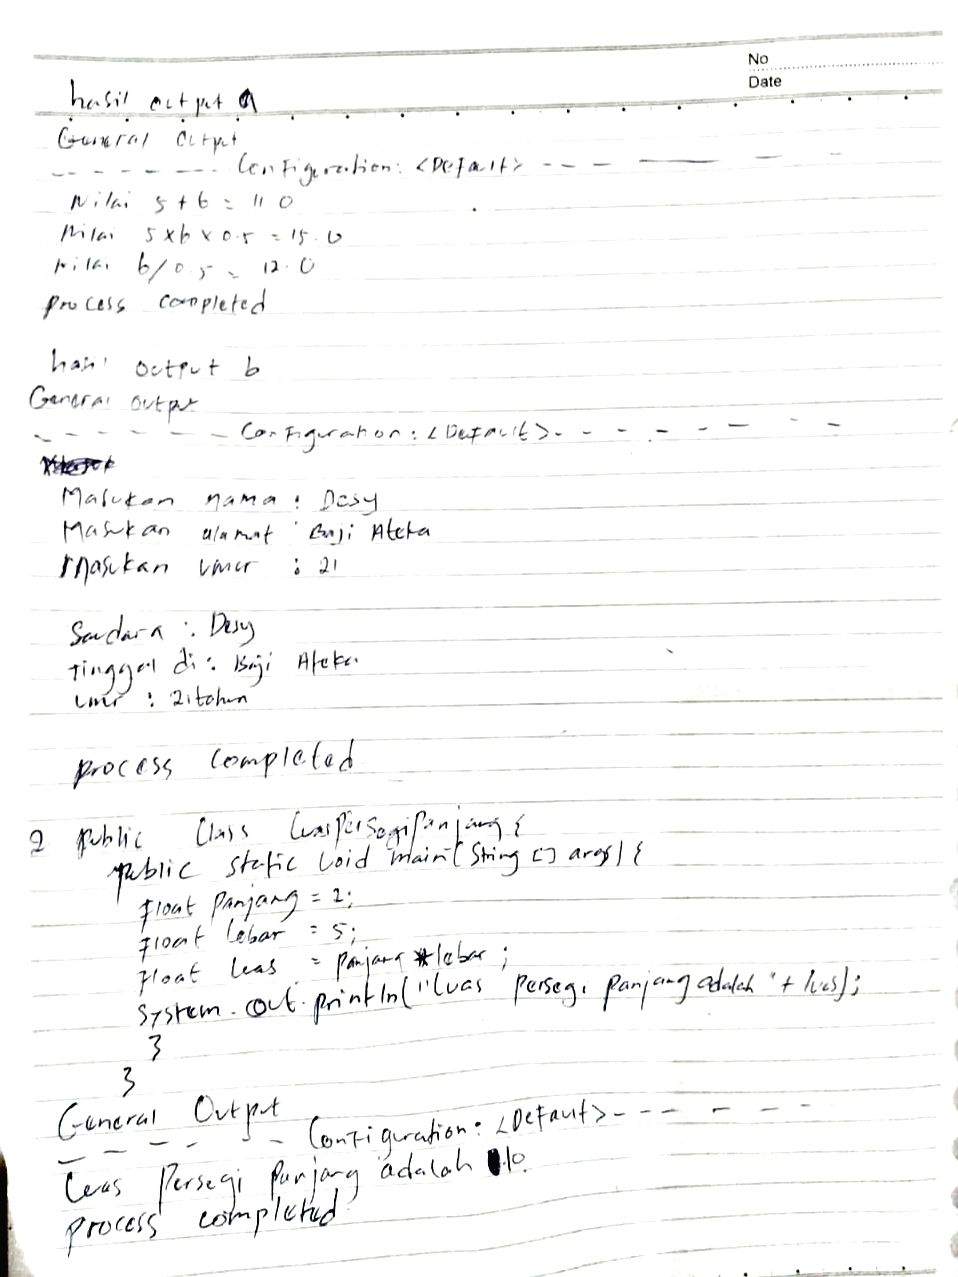 No
Date
hasil output a
General Output
------ Configuration: <Default> ------
Nilai 5 + 6 = 11 0
Nilai 5 x 6 x 0.5 = 15.0
Nilai 6/0.5 = 12.0
process completed
hasil output b
General output
------ Configuration: <Default>-------
Masukan nama : Desy
Masukan alamat : Baji Ateka
Masukan umur : 21
Saudara : Desy
tinggal di : Baji Ateka
umur : 21 tahun
process completed
2 public Class luasPersegiPanjang {
public static void main(String [] args) {
float Panjang = 2;
float lebar = 5;
float luas = panjang * lebar ;
System.out.println("luas persegi panjang adalah "+ luas);
}
}
General Output
----- Configuration: <Default>------
luas Persegi Panjang adalah 10.
process completed